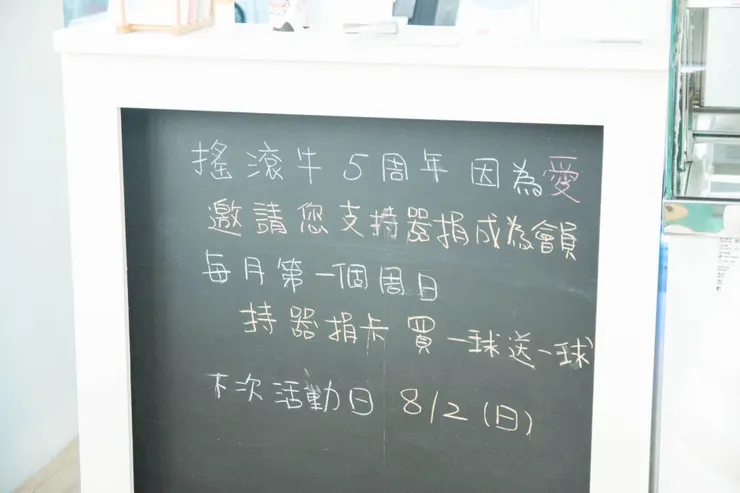 搖滾牛5周年 因為愛
邀請您支持器捐成為會員
每月第一個周日
持器捐卡 買一球送一球
下次活動日 8/2(日)